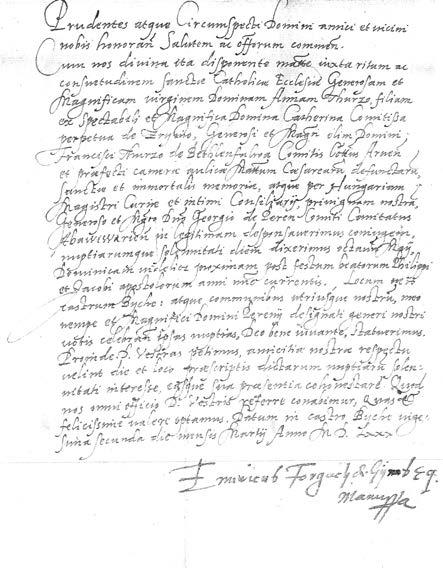 Prudentes atque Circumspecti Domini amici et vicini
nobis honoran Salutem ac offorum commen.
Cum nos divina ita disponente matte iuxta ritum ac
consuetudinem Sanctæ Catholicæ Ecclesiæ Generosam et
Magnificam virginem Dominam Annam Thurzo filiam
ex Spectabili et Magnifica Domina Catherina Comitissa
perpetua de Generosi et Magci olim Domini
Francisci Thurzo de Bethlenfalva Comitis Arven
et præfecti cameræ aulicæ Mattum Cæsarearum defunctarum,
Sanctæ et immortalis memoriæ, atque per Hungariam
Magistri Curiæ et intimi Consiliarij privignam nostram,
Generoso et Mgco Dno Georgio de Peren Comiti Comitatus
Abawivarien in legitimam desponsaverimus coniugem,
nuptiarumque solemnitati diem dixerimus octavum Maij
Dominicam videlicet proximam post festum beatorum Philippi
et Jacobi apostolorum anni nunc currentis. Locum vero
castrum Byche: atque communibus utriusque nostrum, meo
nempe et Magnifici Domini Pereny designati generi nostri
votis celebrari ipsas nuptias, Deo bene iuvante, statuerimus.
Proinde D. Vestras petimus, amicitiæ nostræ respectu
velint die et loco præscriptis dictarum nuptiarum solen-
nitati interesse, easque sua præsentia cohonestare. Quod
nos omni officio D. Vestris referre conabimur, Quas et
felicissime valere optamus. Datum in castro Byche vige-
sima secunda die mensis Martij Anno M. D. Lxxx
Emericus Forgach de Gijmes Eq.
manu ppa